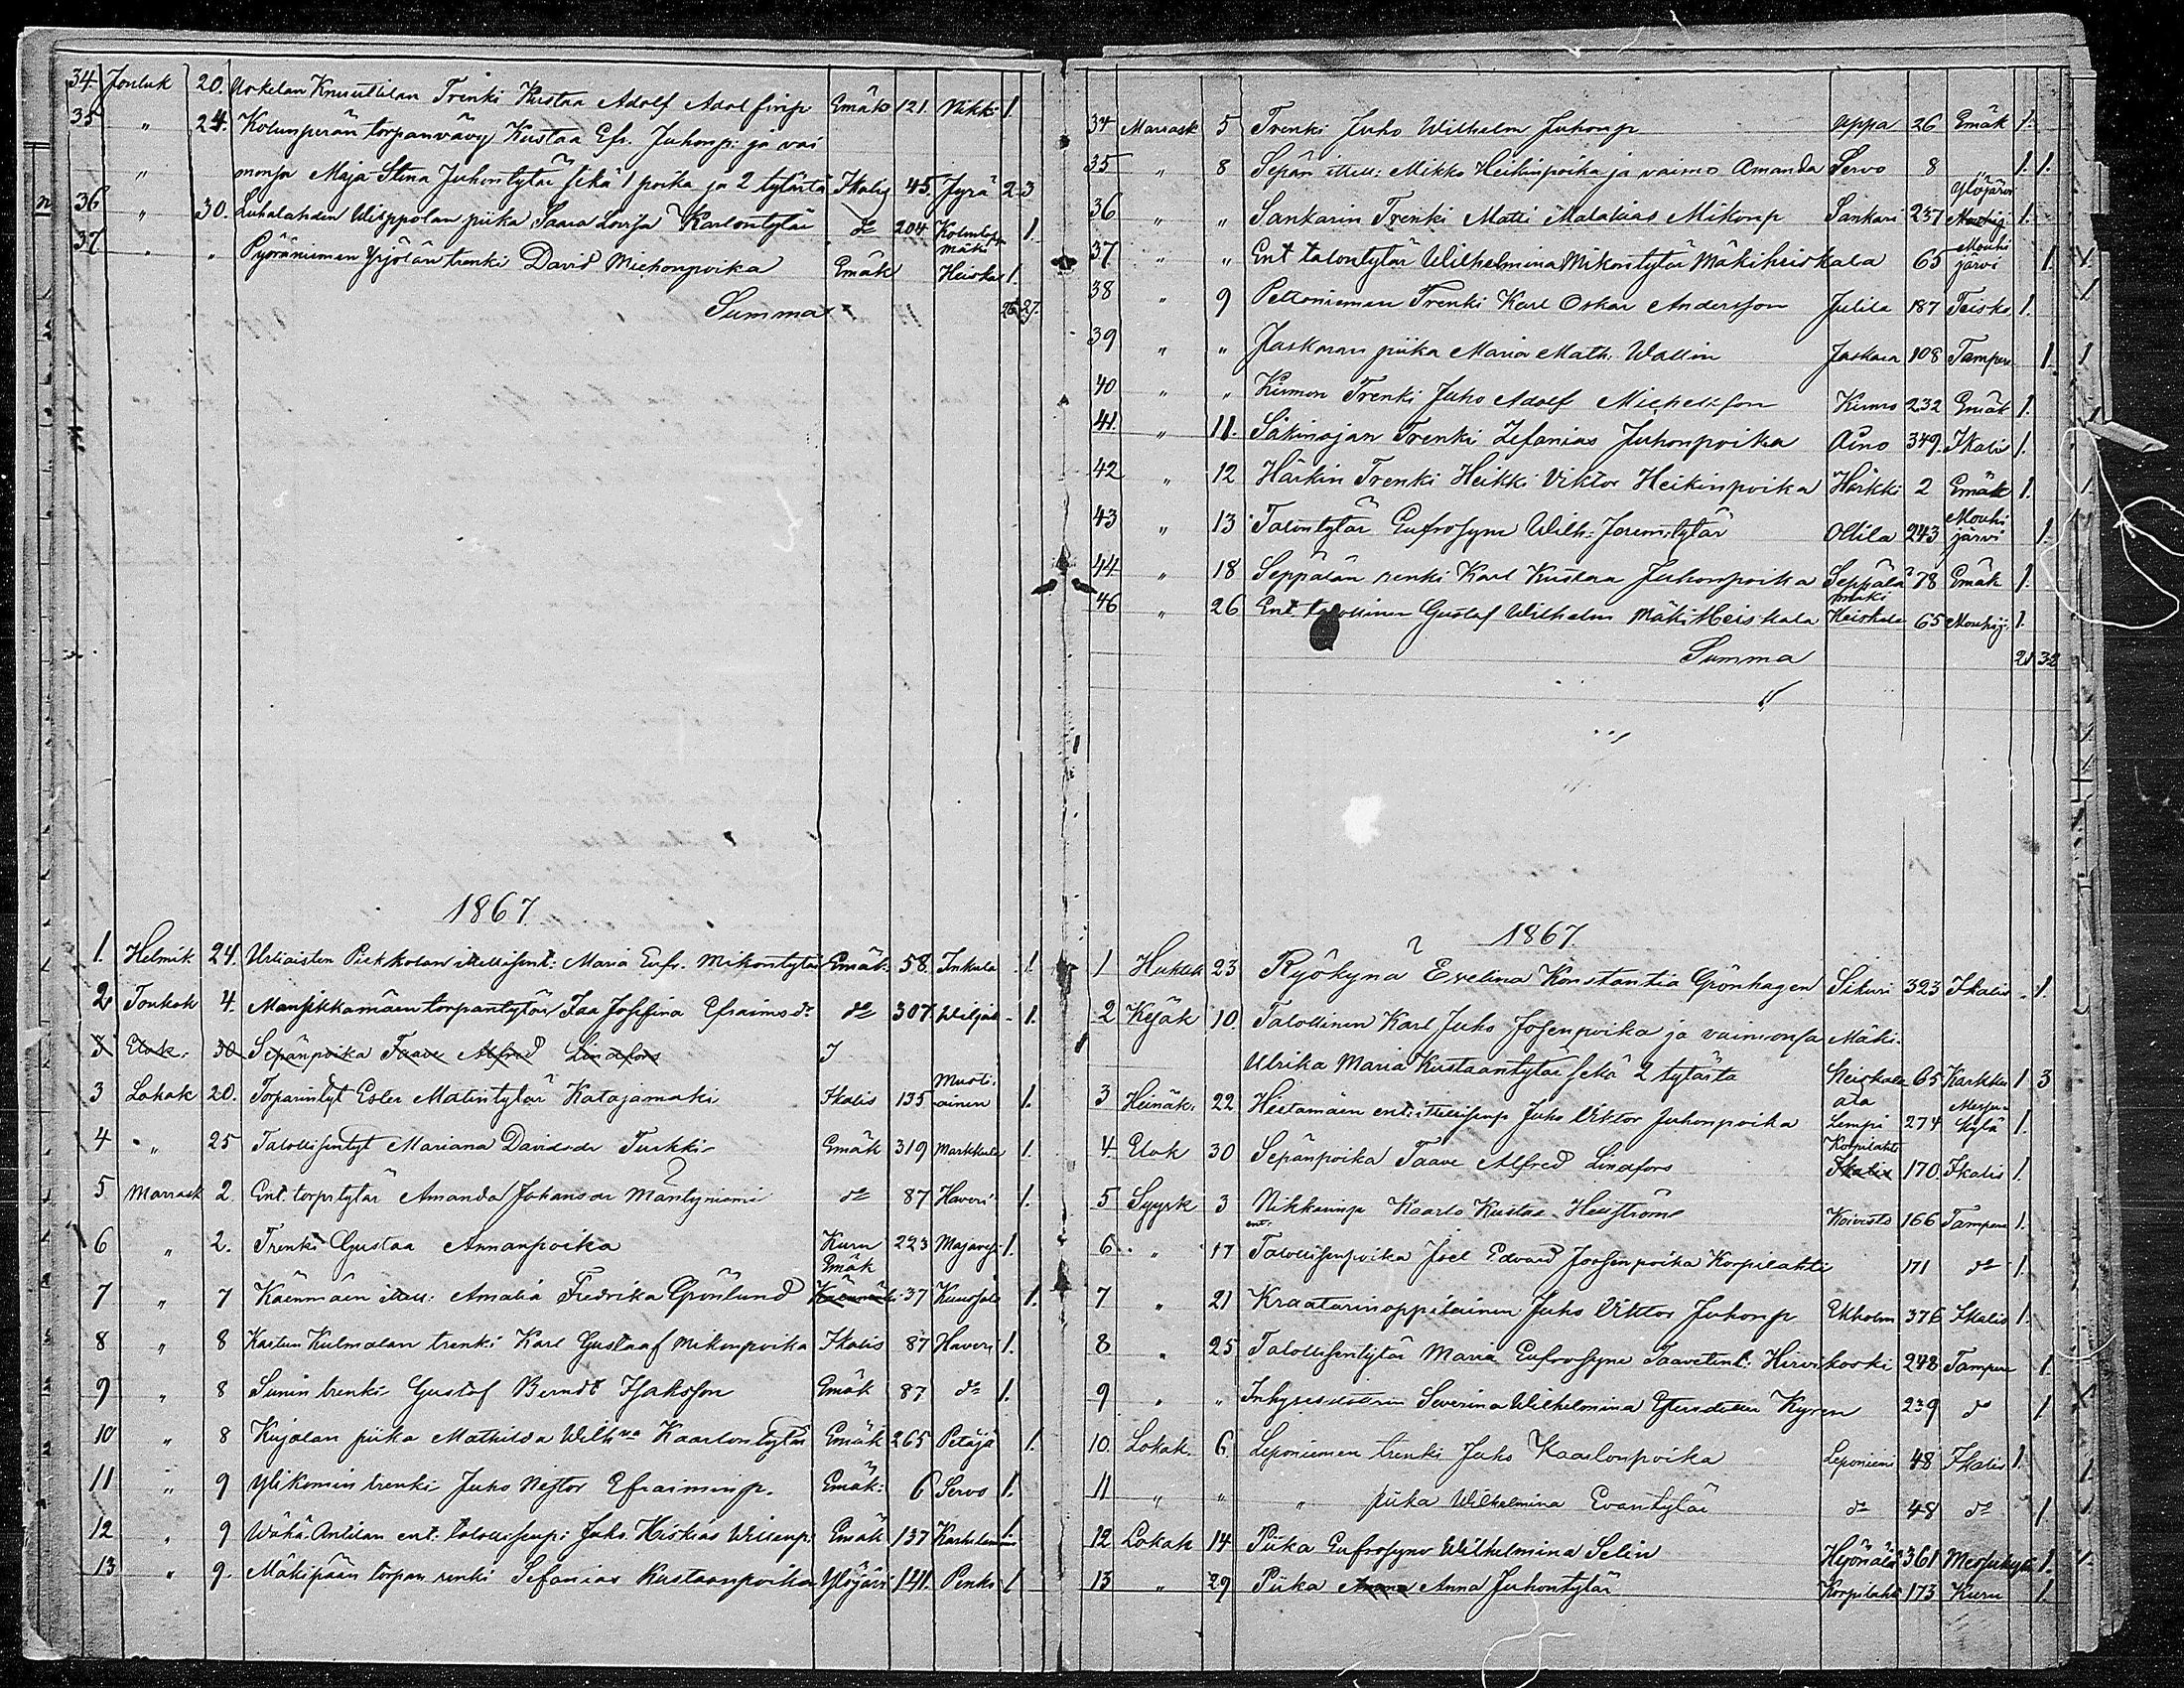 34. Jouluk 20. Knuutilan Trenki Kustaa Adolf Adolfinp Emäk 121. Nikki 1.
35 " 24. Kolunperän torpanvävy Kustaa Efr. Juhonp: ja vai
" monsa Maja Stina Juhontytär sekä 1 poika ja 2 tytärtä Ikalis 45 Jyrä 2 3
36 " 30. Luhalahden Wisppolan piika Saara Lovisa Karlontytär do 204 1.
37. " " Pyöräniemen Yrjölän trenki David Miehonpoika Emäk Heiska 1.
Summa 26 27.
1867.
1. Helmik 24. Urliaisten Pickkolan itsellisent: Maria Eufr. Mikontytär Emäk. 58. Inkula 1.
2 Toukok 4. Mansikkamäen torpantytär Ida Josefina Efraimsdr do 307. Wiljak 1.
3 Elok. 30 Sepänpoika Taave Alfred Lindfors I
3 Lokak 20. Torparintyt Ester Matintytär Katajamäki Ikalis 135 Musti.
ainen 1.
4 " 25 Talollisentyt Mariana Davidsdr Turkki Emäk 319 Markkula 1.
5 Marrask 2. Ent. torp:tytär Amanda Johansdr Mäntyniemi do 87 Haveri 1.
6 " 2. Trenki Gustaa Annanpoika Kuru 223 Majaves 1.
Emäk
7 " 7 Käenmäen itsell: Amalia Fredrika Grönlund Käenmäki 37 Kuusjok 1.
8 " 8 Kulmalan trenki Karl Gustaaf Mikonpoika Ikalis 87 Haveri 1.
9 " 8 Sunin trenki Gustaf Berndt Isaksson Emäk 87 do 1.
10 " 8 Kujalan piika Mathilda Wilhna Kaarlontytär Emäk 265 Petäjä 1.
11 " 9 Ylikomin trenki Juho Nestor Efraiminp. Emäk: 6 Servo 1.
12 " 9 Wähä Antilan ent: talollisenp: Juho Hiskias Willenp: Emäk 137 1.
13 " 9. Mäkipään torpan renki Sefanias Kustaanpoika Ylöjärvi 141. Penki 1
34 Marrask 5 Trenki Juho Wilhelm Juhonp Oppa 26 Emäk 1.
35 " 8 Sepän itsell: Mikko Heikinpoika ja vaimo Amanda Servo 8 1. 1.
36 " " Sankarin Trenki Matti Malakias Mikonp Sankari 237 Ylöjärvi
Mouhij 1.
37 " " Ent talontytär Wilhelmina Mikontytär Mäkiheiskala 65 Mouhi
järvi 1.
38 " 9 Peltoniemen Trenki Karl Oskar Andersson Julila 187 Teisko 1.
39 " " Jaskaran piika Maria Math: Wallin Jaskara 108 Tamper 1.
40 " " Kirmon Trenki Juho Adolf Michelsson Kirmo 232 Emäk 1.
41. " 11. Säkinojan Trenki Zefanias Juhonpoika Aino 349. Ikalis 1.
42 " 12 Härkin Trenki Heikki Viktor Heikinpoika Härkki 2 Emäk 1.
43 " 13 Talontytär Eufrosyne Wilh: Jerem:tytär Ollila 243 Mouhi
järvi 1.
44 " 18 Seppälän renki Karl Kustaa Juhonpoika Seppälä 78 Emäk 1.
46 " 26 Ent. talollinen Gustaf Wilhelm Mäki Heiskala Mäki
Heiskala 65 Mouhij. 1.
Summa 28 32
1867.
1 Huhtik 23 Ryökynä Evelina Konstantia Grönhagen Sikuri 323 Ikalis 1.
2 Kesäk 10. Talollinen Karl Juho Josefinpoika ja vaimonsa Mäki-
Ulrika Maria Kustaantytär sekä 2 tytärtä Heiskala 65 Karkku 1 3
3 Heinäk. 22 Hietamäen ent: itsellisenp Juho Viktor Juhonpoika ala
Lempi 274 Messu-
kylä 1.
4. Elok 30 Sepänpoika Taave Alfred Lindfors Korpilahti
Ikalis 170. Ikalis 1.
5 Syysk 3 Nikkarinp Kaarlo Kustaa Heuström Koivisto 166 Tampere 1.
6. " 17 ent: Talollisenpoika Joel Edvard Joosenpoika Korpilahti 171 do 1.
7 " 21 Kraatarinoppilainen Juho Viktor Juhonp Ekholm 376 Ikalis 1.
8 " 25 Talollisentytär Maria Eufrosyne Taavetint: Hirvikoski 248 Tampere 1.
9 " " Severina Wilhelmina Kyren 239 do 1.
10. Lokak. 6. Leponiemen trenki Juho Kaarlonpoika Leponiemi 48 Ikalis 1.
11 " " " piika Wilhelmina Evantytär do 48 do 1.
12 Lokak 14 Piika Eufrosyne Wilhelmina Selin Hejönälä 361 Messukylä 1.
13 " 29 Piika Anna Anna Juhontytär Korpilahti 173 Kuru 1.